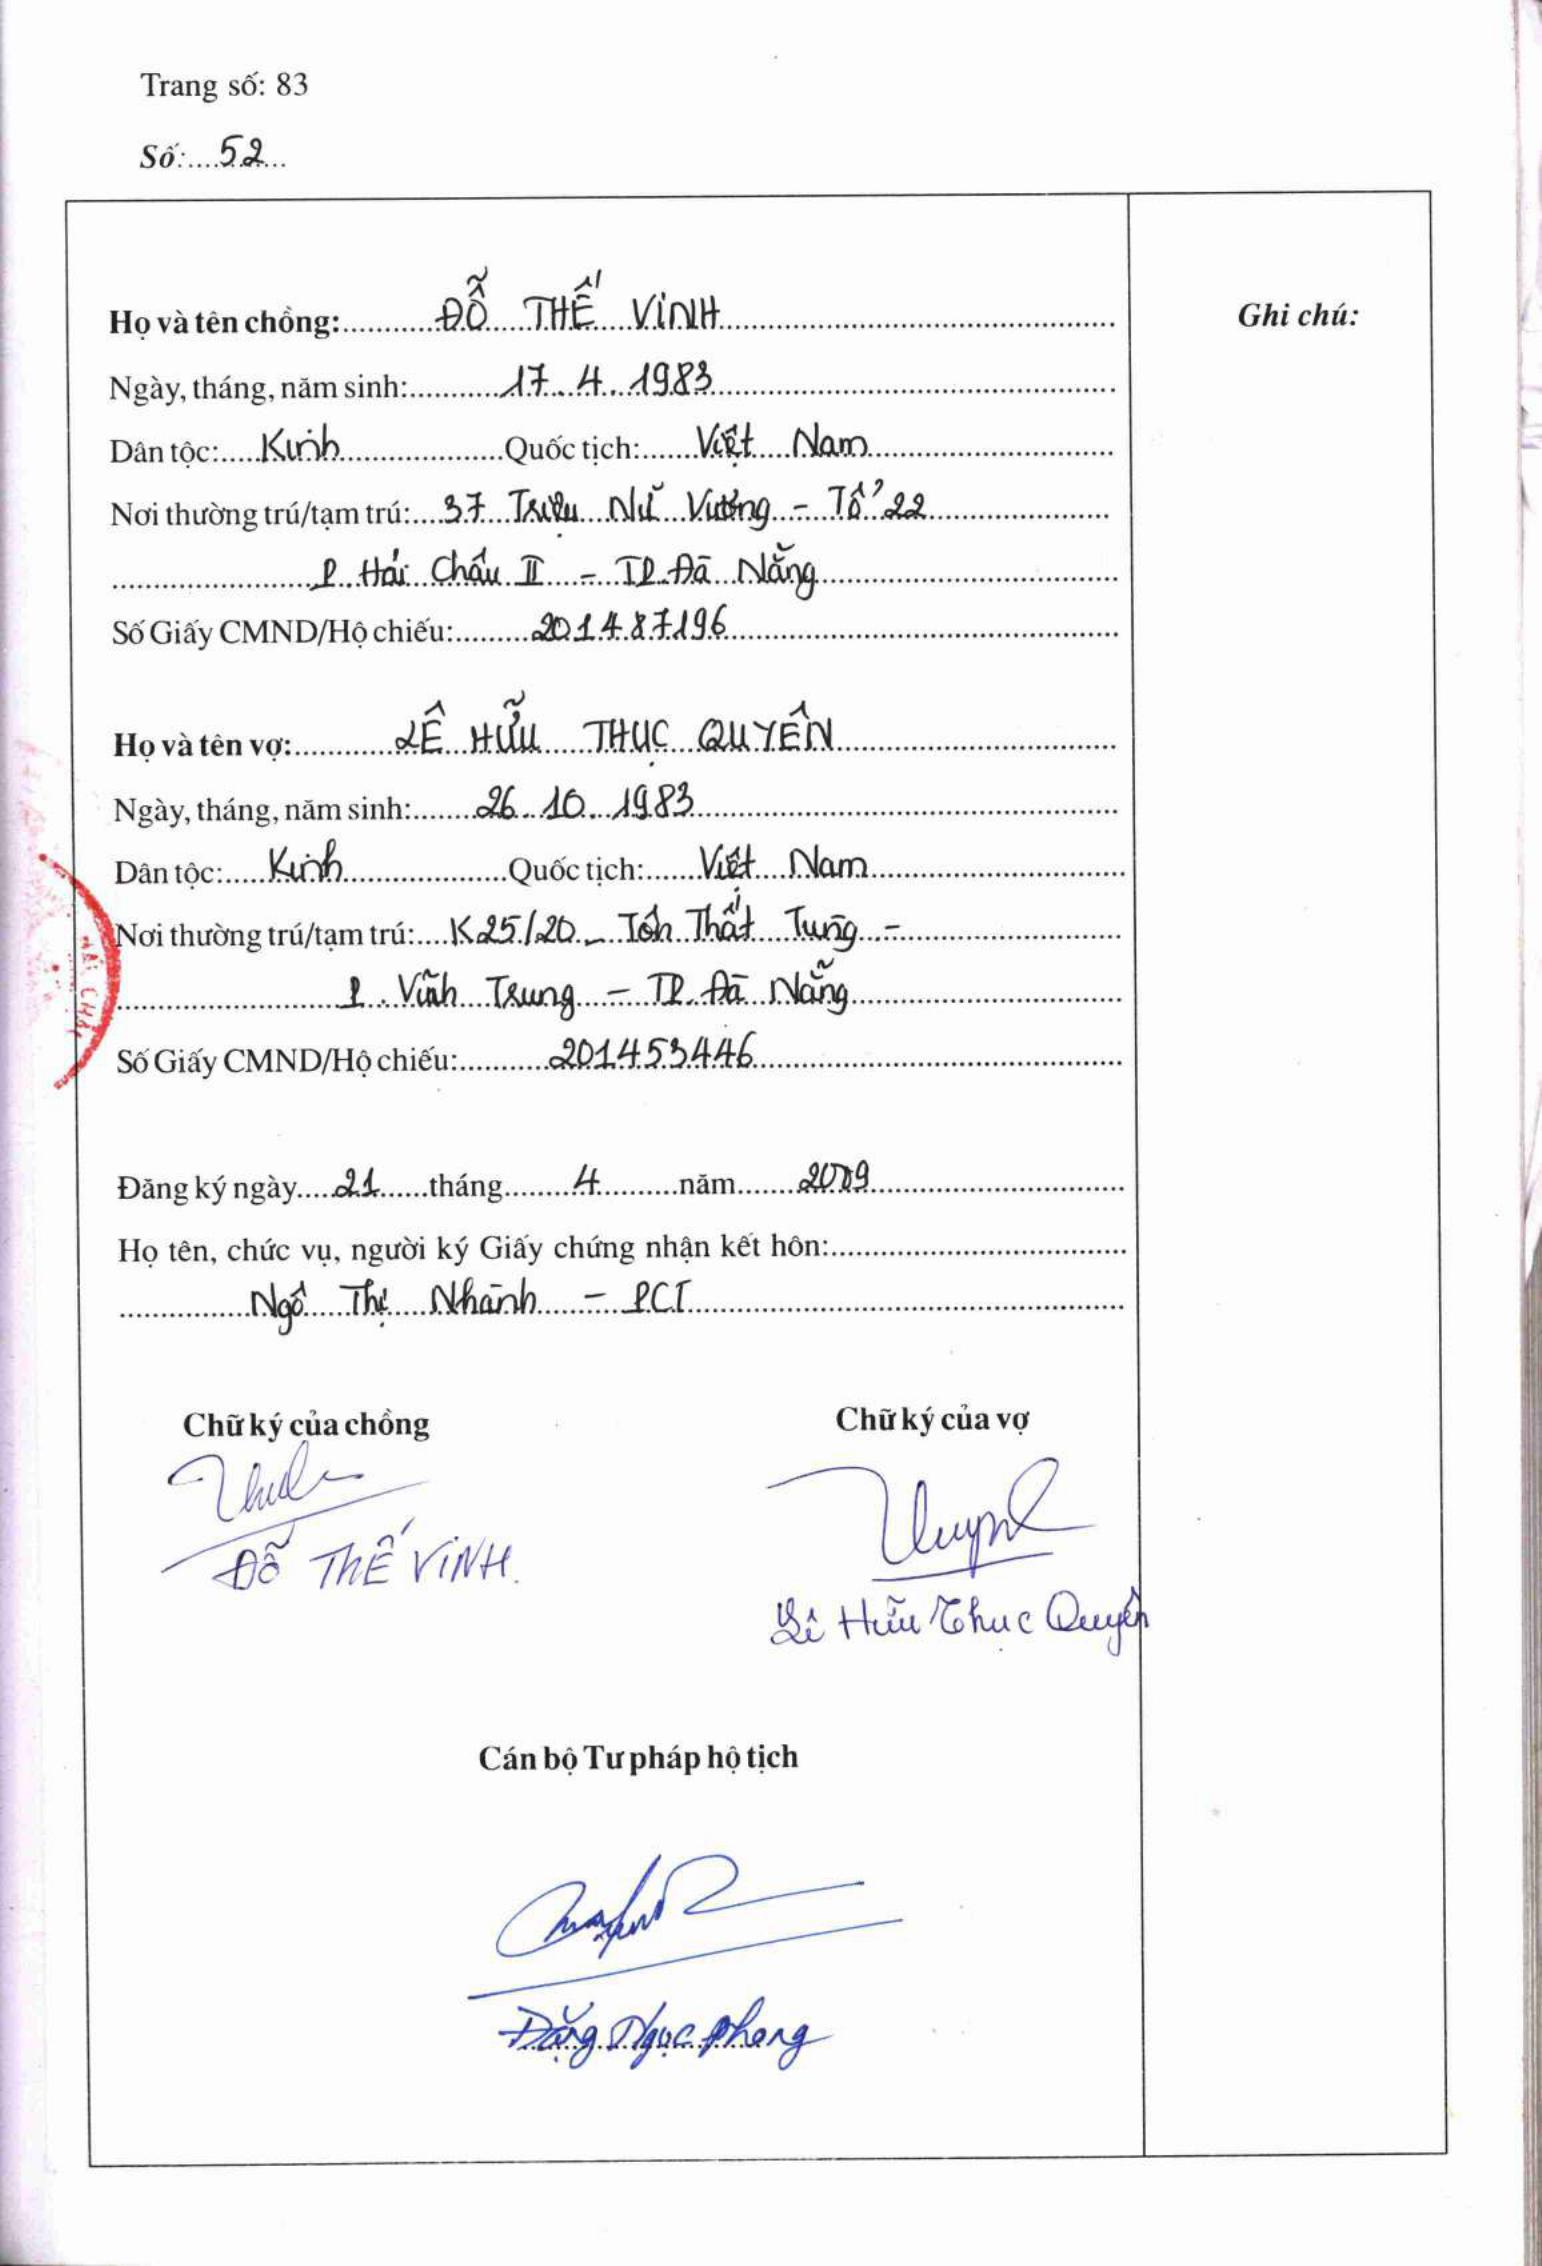 Trang số: 83
Số: 52
Họ và tên chồng: ĐỖ THẾ VINH
Ghi chú:
Ngày, tháng, năm sinh: 17. 4. 1983
Dân tộc: Kinh Quốc tịch: Việt Nam
Nơi thường trú/tạm trú: 37 Triệu Nữ Vương - Tổ 22
P. Hải Châu II - TP. Đà Nẵng
Số Giấy CMND/Hộ chiếu: 201487196
Họ và tên vợ: LÊ HỮU THỤC QUYÊN
Ngày, tháng, năm sinh: 26. 10. 1983
Dân tộc: Kinh Quốc tịch: Việt Nam
Nơi thường trú/tạm trú: K25/20 - Tôn Thất Tùng -
P. Vĩnh Trung - TP. Đà Nẵng
Số Giấy CMND/Hộ chiếu: 201453446
Đăng ký ngày 21 tháng 4 năm 2009
Họ tên, chức vụ, người ký Giấy chứng nhận kết hôn:
Ngô Thị Nhành - PCT
Chữ ký của chồng Chữ ký của vợ
ĐỖ THẾ VINH.
Lê Hữu Thục Quyên
Cán bộ Tư pháp hộ tịch
Đặng Ngọc Phong